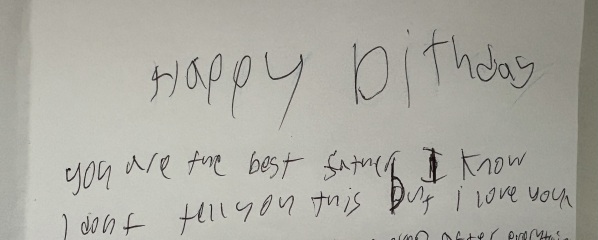 Happy bithday
you are the best father I know
I dont tell you this but i love you
after everythin